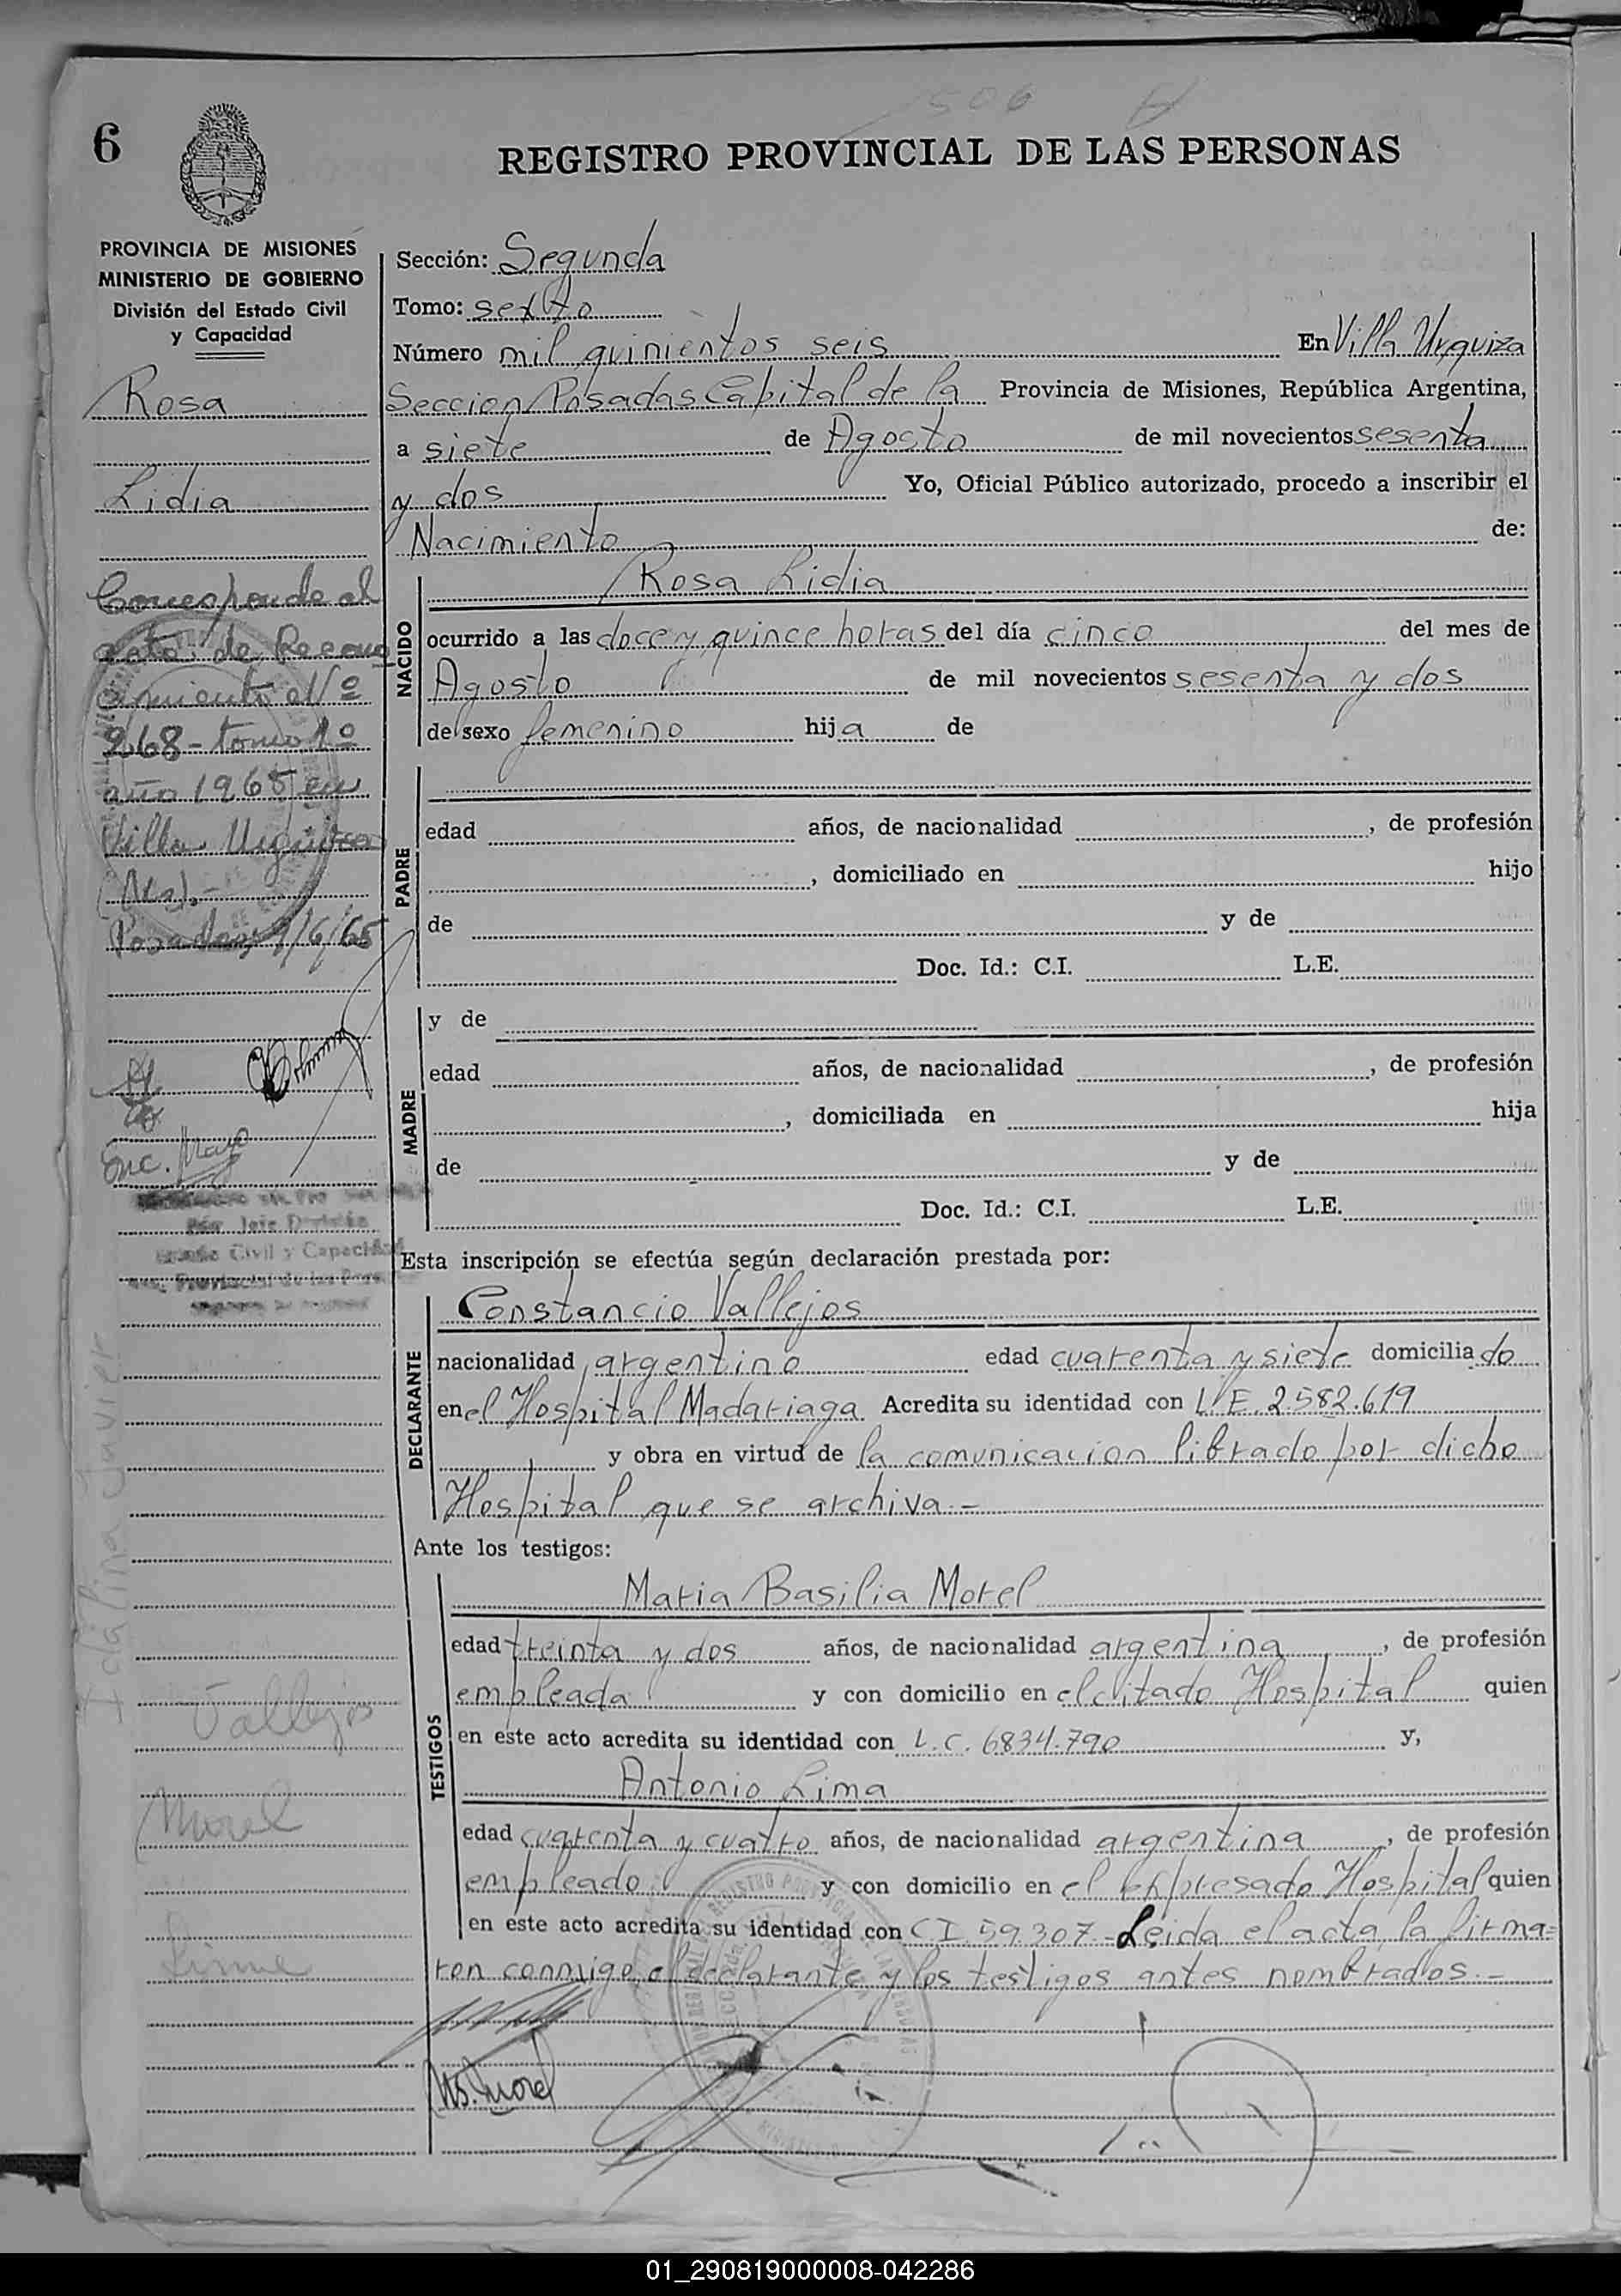 1506
6
REGISTRO PROVINCIAL DE LAS PERSONAS
PROVINCIA DE MISIONES
MINISTERIO DE GOBIERNO
División del Estado Civil
y Capacidad
Rosa
Lidia
Corresponde al
acto de Recono
cimiento Nº
268 - tomo 1º
año 1965 en
Villa Urquiza
(Mes).-
Posadas, 9/6/65
Enc. Mayo
Jefe División
Estado Civil y Capacidad
Provincial de las Personas
Idalina Javier
Vallejos
Morel
Lima
Sección: Segunda
Tomo: sexto
Número mil quinientos seis En Villa Urquiza
Seccion Posadas Capital de la Provincia de Misiones, República Argentina,
a siete de Agosto de mil novecientos sesenta
y dos Yo, Oficial Público autorizado, procedo a inscribir el
Nacimiento de:
NACIDO
Rosa Lidia
ocurrido a las doce y quince horas del día cinco del mes de
Agosto de mil novecientos sesenta y dos
del sexo femenino hija de
PADRE
edad años, de nacionalidad , de profesión
, domiciliado en hijo
de y de
Doc. Id.: C.I. L.E.
MADRE
y de
edad años, de nacionalidad , de profesión
, domiciliada en hija
de y de
Doc. Id.: C.I. L.E.
Esta inscripción se efectúa según declaración prestada por:
DECLARANTE
Constancio Vallejos
nacionalidad argentino edad cuarenta y siete domiciliado
en el Hospital Madariaga Acredita su identidad con L.E. 2.582.619
y obra en virtud de la comunicacion librado por dicho
Hospital que se archiva.-
Ante los testigos:
TESTIGOS
Maria Basilia Morel
edad treinta y dos años, de nacionalidad argentina, de profesión
empleada y con domicilio en el citado Hospital quien
en este acto acredita su identidad con L.C. 6834.790 y,
Antonio Lima
edad cuarenta y cuatro años, de nacionalidad argentina, de profesión
empleado y con domicilio en el expresado Hospital quien
en este acto acredita su identidad con CI 59.307.- Leida el acta, la firma=
ron conmigo, el declarante y los testigos antes nombrados.-
MB. Morel
01_290819000008-042286